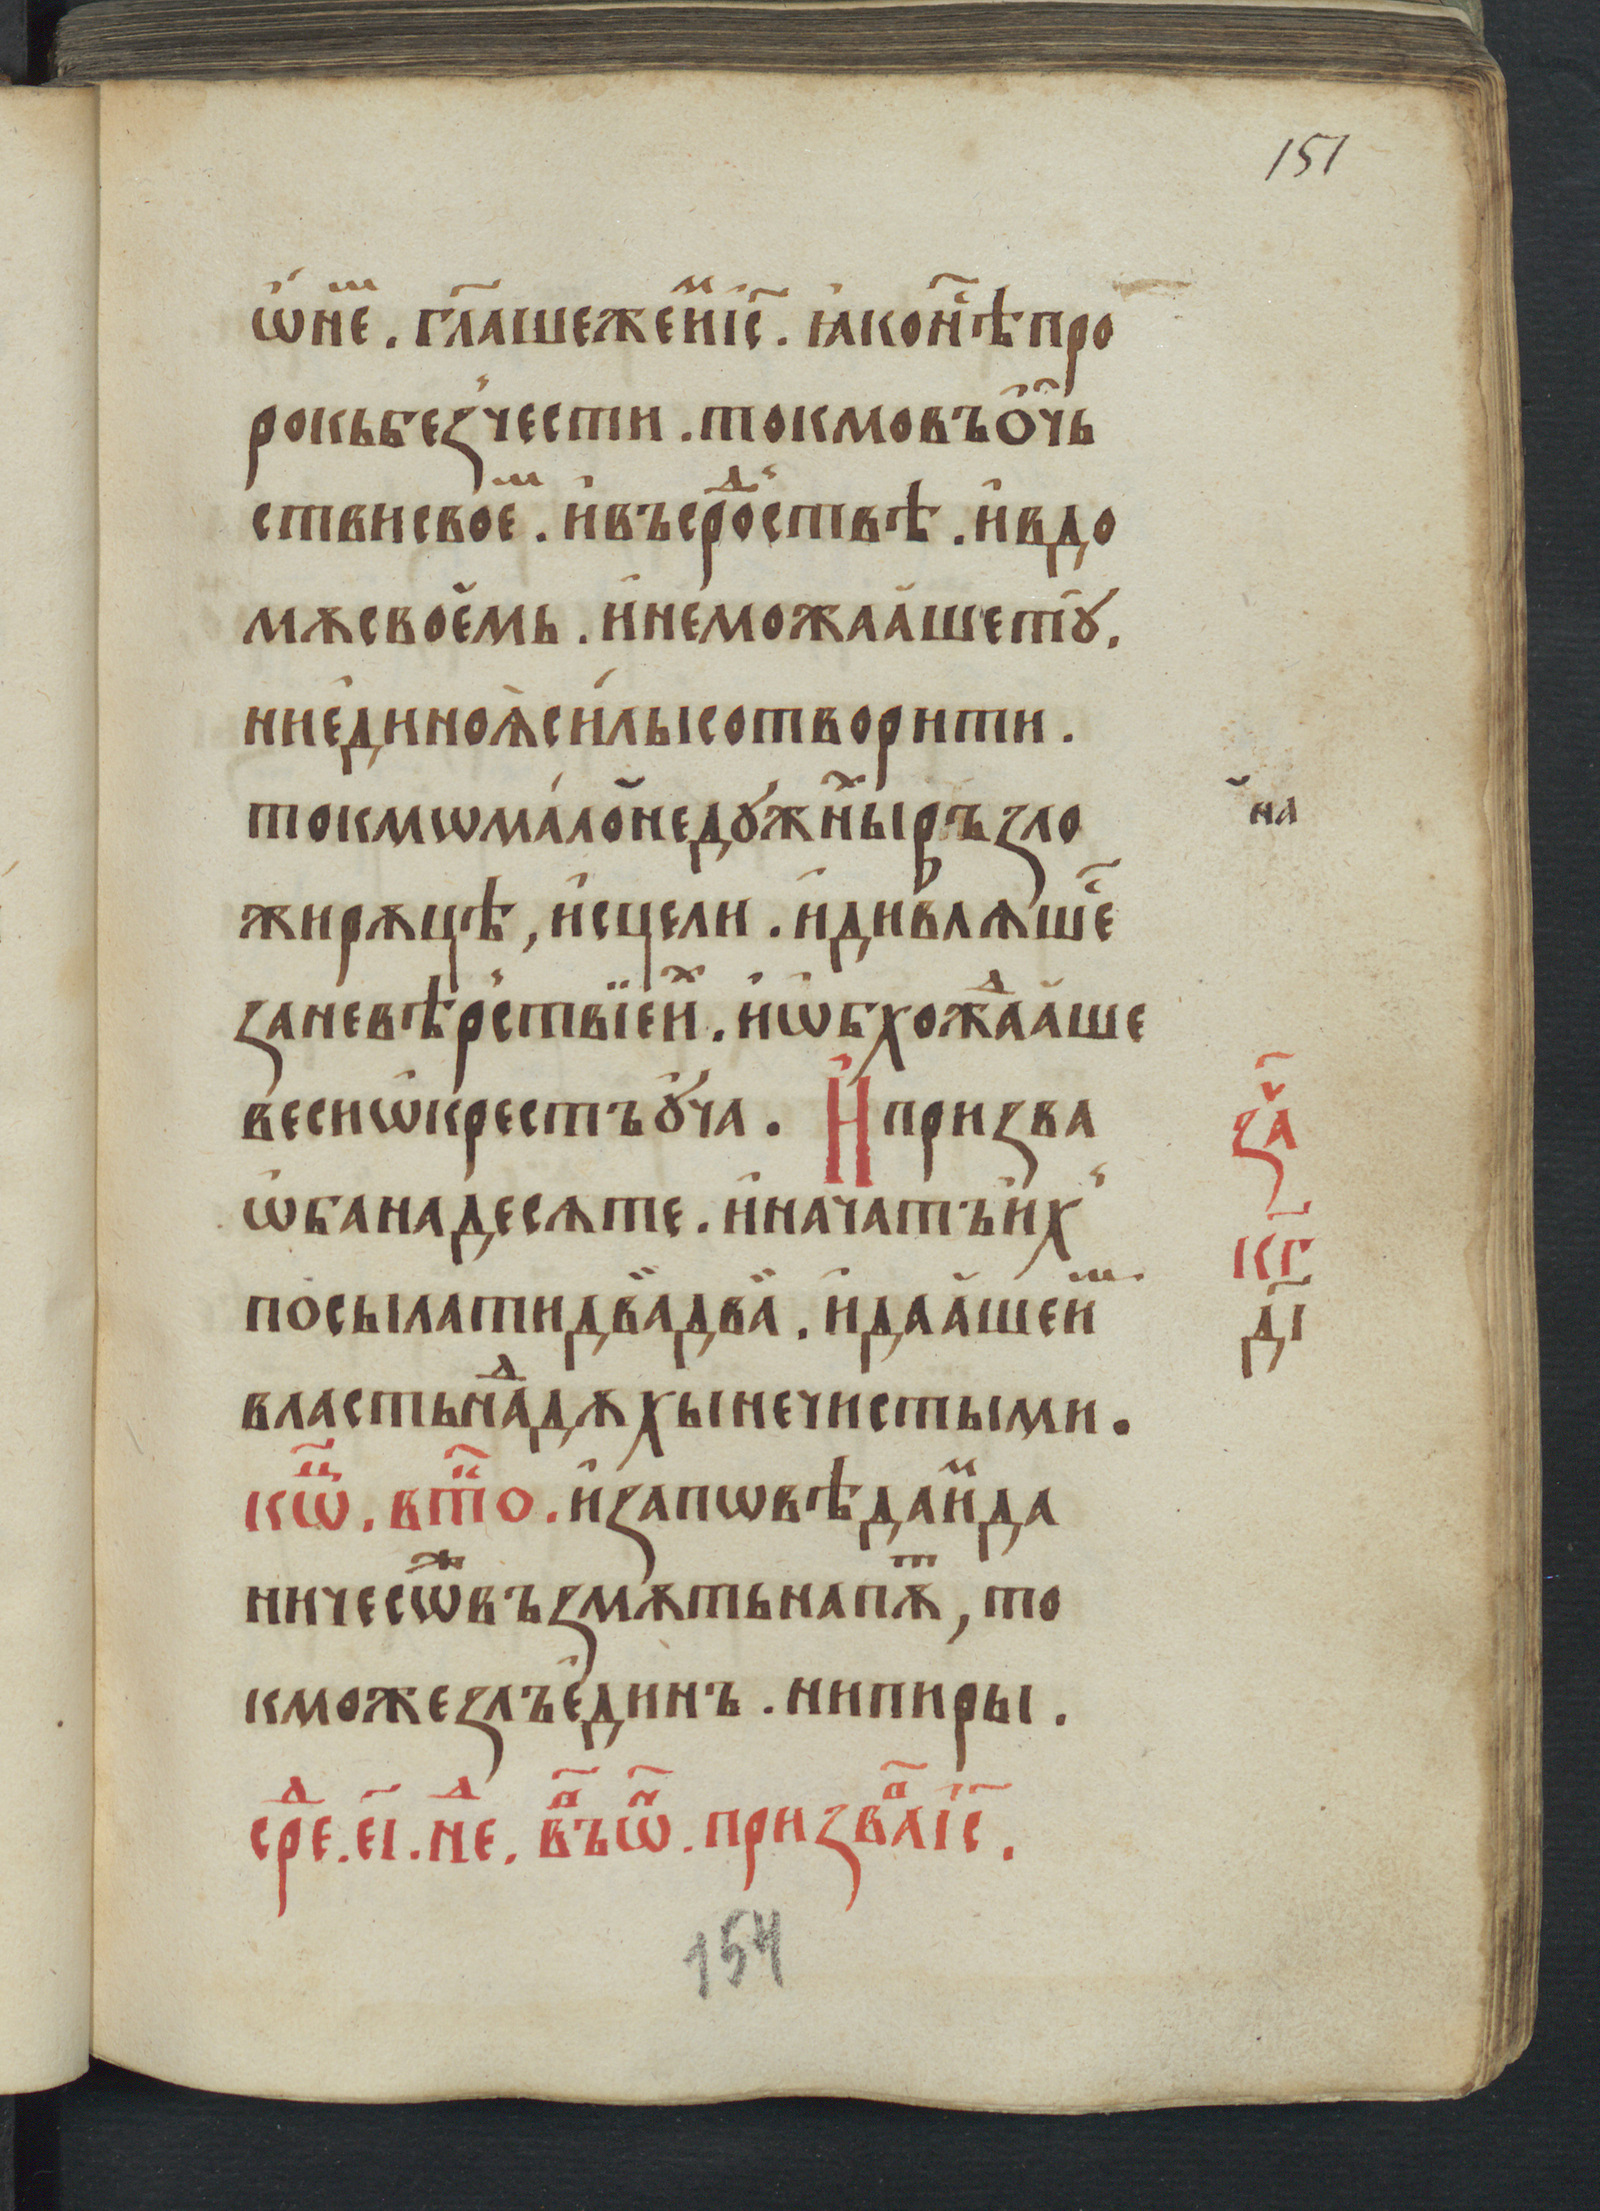 151
ѡ҆не́ⷨ. гл҃аше же и҆ⷨ і҆с҃. ꙗ҆ко нⷭ҇ѣ про
рокь без̾ чести. токмо въ ѻ҆ч҃ь
стви своеⷨ. и҆ въ срⷣоствѣ. и҆ в до
мѫ своемь. и҆ не можааше тꙋ̀.
ни е҆диноѧ̀ си́лы сотворити.
токмѡ ма́ло недꙋ́жныⷯ ръзло
жи рѫцѣ, и҆сцели. и҆ дивлѧшеⷭ҇
за невѣр̾ствїе и҆ⷯ. и҆ ѡ҆бхожⷣааше
веси ѡ҆крестъ ᲂу҆́ча. И҆ призва
ѡ҆банадесѧте. и҆ начатъ и҆х̾
посылати два два. и҆ дааше иⷨ
власть наⷣ дѫхы нечистыми.
кѡⷰ҇. втⷪ҇ро. и҆ запѡвѣда и҆ⷨ да
ничесѡⷤ въземѫть на пѫⷮ, то
кмо жезлъ е҆динъ. ни пиры.
срⷣе. е҃і. неⷣ. въ ѡⷩ҇. призва і҆с҃.
на
за҃
кг҃
ді҃
154